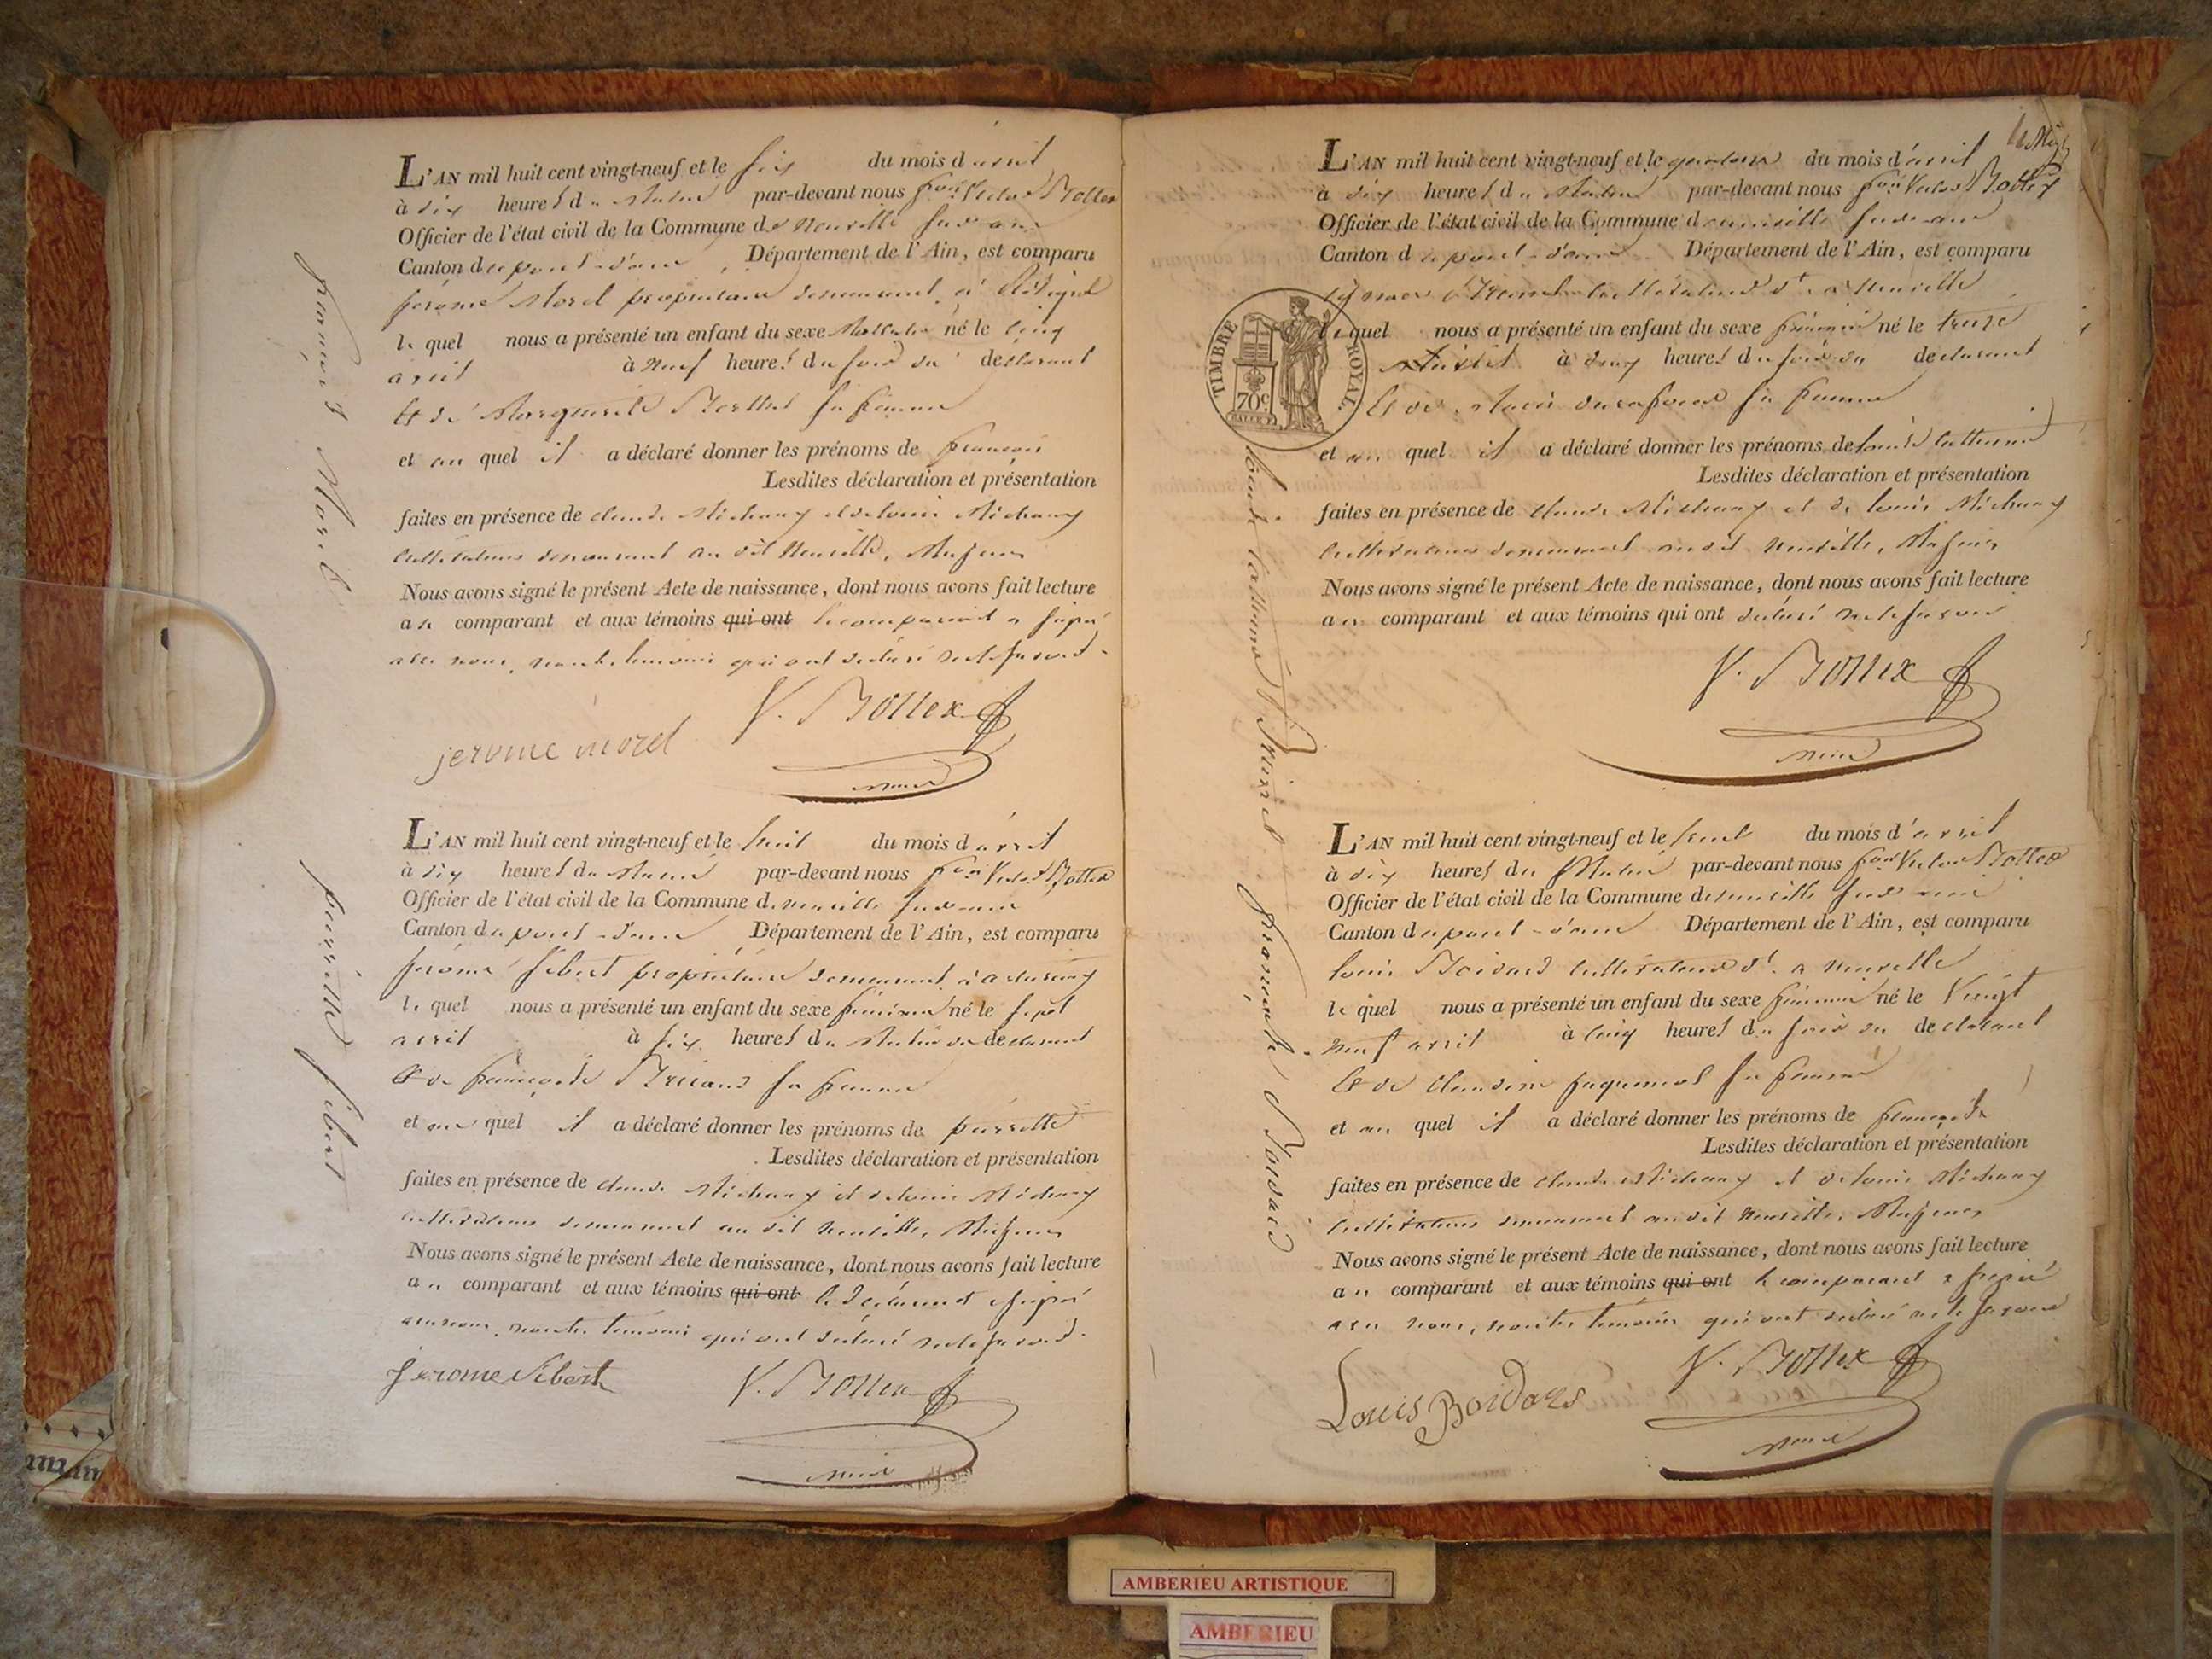 François Morel
L'AN mil huit cent vingt-neuf et le six du mois d'avril
à dix heures du matin par-devant nous fçois Victor Bottex
Officier de l'état civil de la Commune de Neuville sur ain
Canton de pont-d'ain, Département de l'Ain, est comparu
jerome Morel propriétaire demeurant à
le quel nous a présenté un enfant du sexe Masculin né le cinq
avril à Neuf heures du soir du déclarant
Et de Marguerite Berthet sa femme
et au quel il a déclaré donner les prénoms de françois
Lesdites déclaration et présentation
faites en présence de claude Michaux et de louis Michaux
cultivateurs demeurant au dit Neuville, Majeurs
Nous avons signé le présent Acte de naissance, dont nous avons fait lecture
au comparant et aux témoins qui ont le comparant a signé
avec nous, non les temoins qui ont déclaré ne le savoir.
V. Bottex
jerome morel
maire
pierrette Sibert
L'AN mil huit cent vingt-neuf et le huit du mois d'avril
à dix heures du matin par-devant nous fçois Victor Bottex
Officier de l'état civil de la Commune de neuville sur ain
Canton de pont-d'ain Département de l'Ain, est comparu
jerome Sibert propriétaire demeurant à
le quel nous a présenté un enfant du sexe féminin né le sept
avril à six heures du Matin du déclarant
Et de françoise sa femme
et au quel il a déclaré donner les prénoms de pierrette
Lesdites déclaration et présentation
faites en présence de claude Michaux et de louis Michaux
cultivateurs demeurant au dit Neuville, Majeurs
Nous avons signé le présent Acte de naissance, dont nous avons fait lecture
au comparant et aux témoins qui ont le déclarant a signé
avec nous, non les temoins qui ont déclaré ne le savoir.
Jerome Sibert V. Bottex
maire
L'AN mil huit cent vingt-neuf et le quatorze du mois d'avril
à dix heures du Matin par-devant nous fçois Victor Bottex
Officier de l'état civil de la Commune de neuville sur ain
Canton de pont-d'ain Département de l'Ain, est comparu
cultivateur dt à Neuville
le quel nous a présenté un enfant du sexe féminin né le treize
avril à heures du soir du déclarant
Et de Marie sa femme
et au quel il a déclaré donner les prénoms de louise catherine
Lesdites déclaration et présentation
faites en présence de claude Michaux et de louis Michaux
cultivateurs demeurant au dit Neuville, Majeurs
Nous avons signé le présent Acte de naissance, dont nous avons fait lecture
au comparant et aux témoins qui ont déclaré ne le savoir
V. Bottex
maire
TIMBRE ROYAL
70c
louise catherine
françoise Boidard
L'AN mil huit cent vingt-neuf et le trente du mois d'avril
à dix heures du Matin par-devant nous fçois Victor Bottex
Officier de l'état civil de la Commune de neuville sur ain
Canton de pont-d'ain Département de l'Ain, est comparu
louis Boidard cultivateur dt a neuville
le quel nous a présenté un enfant du sexe féminin né le Vingt
neuf avril à cinq heures du soir du déclarant
Et de claudine sa femme
et au quel il a déclaré donner les prénoms de françoise
Lesdites déclaration et présentation
faites en présence de claude Michaux et de louis Michaux
cultivateurs demeurant au dit Neuville, Majeurs
Nous avons signé le présent Acte de naissance, dont nous avons fait lecture
au comparant et aux témoins qui ont le comparant a signé
avec nous, non les témoins qui ont déclaré ne le savoir
V. Bottex
Louis Boidard
maire
AMBERIEU ARTISTIQUE
AMBERIEU